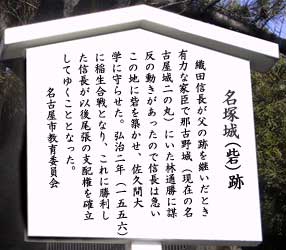 名塚城(砦)跡
織田信長が父の跡を継いだとき
有力な家臣で那古野城(現在の名
古屋城二の丸)にいた林通勝に謀
反の動きがあったので信長は急い
この地に砦を築かせ、佐久間大
学に守らせた。弘治二年(一五五六)
に稲生合戦となり、これに勝利し
た信長が以後尾張の支配権を確立
してゆくこととなった。
名古屋市教育委員会